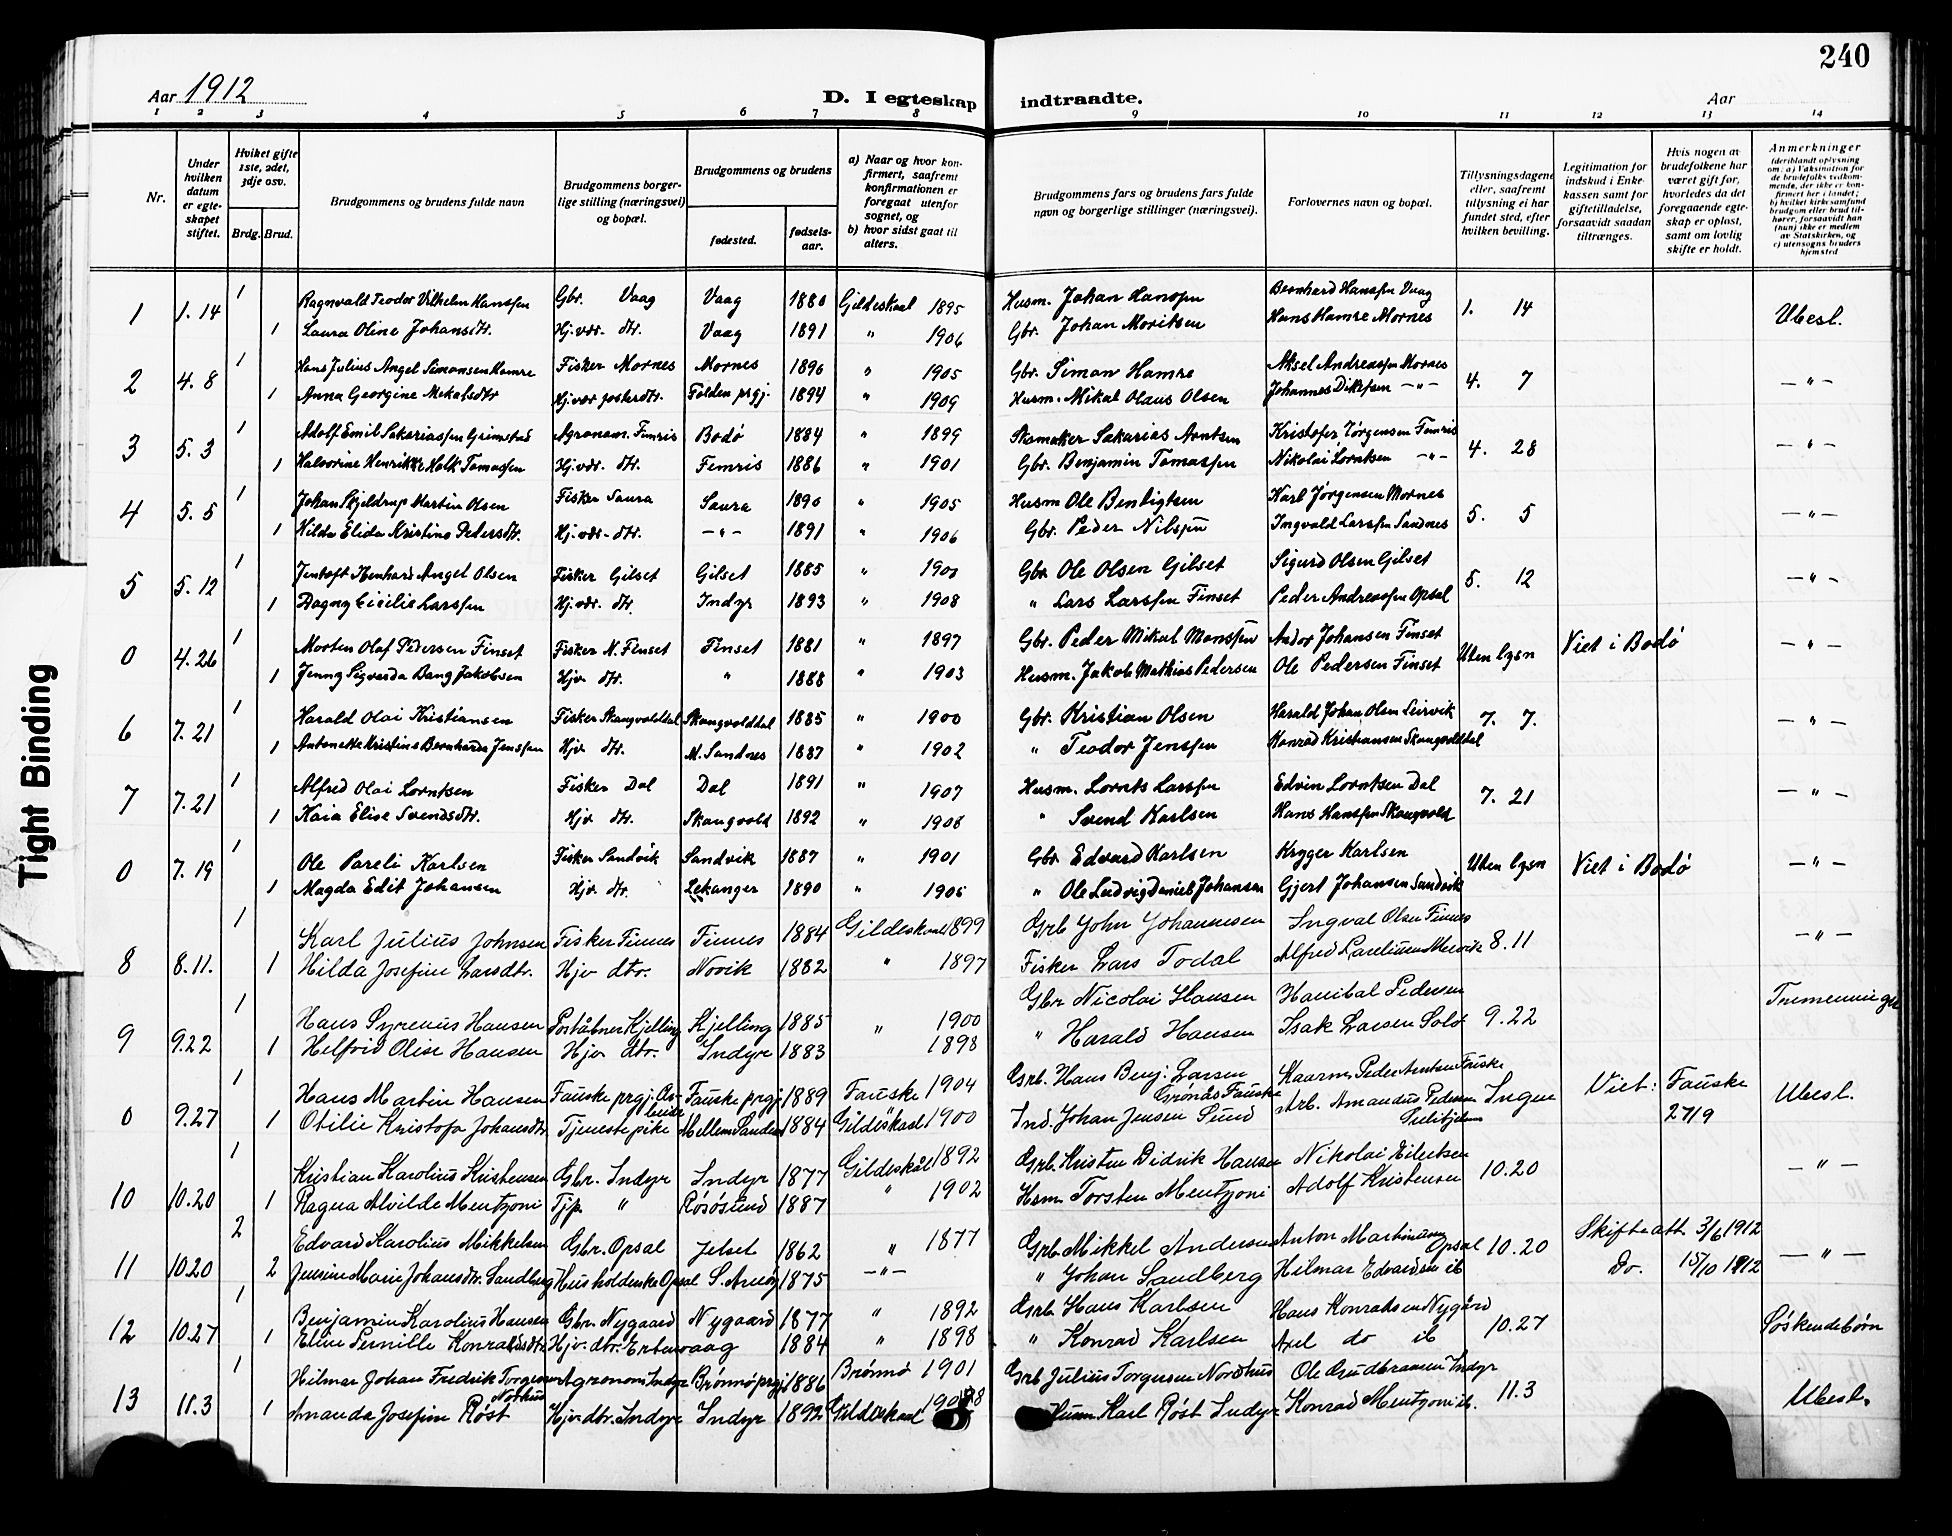 240
Aar 1912
D. I egteskap indtraadte.
Aar
1 2 3 4 5 6 7 8 9 10 11 12 13 14
Nr.
Under hvilken datum er egteskapet stiftet.
Hviket gifte 1ste, 2det, 3dje osv.
Brdg. Brud.
Brudgommens og brudens fulde navn
Brudgommens borgerlige stilling (næringsvei) og bopæl.
Brudgommens og brudens
fødested.
fødselsaar.
a) Naar og hvor konfirmert, saafremt konfirmationen er foregaat utenfor sognet, og
b) hvor sidst gaat til alters.
Brudgommens fars og brudens fars fulde navn og borgerlige stillinger (næringsvei).
Forlovernes navn og bopæl.
Tillysningsdagene eller, saafremt tillysning ei har fundet sted, efter hvilken bevilling.
Legitimation for indskud i Enkekassen samt for giftetilladelse, forsaavidt saadan tiltrænges.
Hvis nogen av brudefolkene har været gift før, hvorledes da det foregaaende egteskap er opløst, samt om lovlig skifte er holdt.
Anmerkninger (deriblandt oplysning om: a) Vaksination for de brudefolks vedkommende, der ikke er konfirmert her i landet; b) hvilket kirkesamfund brudgom eller brud tilhører, forsaavidt han (hun) ikke er medlem av Statskirken, og c) utensogns bruders hjemsted
1 1.14 1 Ragnvald Teodor Vilhelm Hanssen Gbr. Vaag Vaag 1880 Gildeskaal 1895 Husm. Johan Hanssen Bernhard Hanssen Vaag 1. 14 Ubesl.
1 Laura Oline Johansdtr. Hj.vær. dtr. Vaag 1891 " 1906 Gbr. Johan Moritsen Hans Hamre Mornes
2 4.8 1 Hans Julius Angel Simonsen Hamre Fisker Mornes Mornes 1890 " 1905 Gbr. Simon Hamre Aksel Andreassen Mornes 4. 7 – " –
1 Anna Georgine Mekalsdtr Hj.vær fosterdtr. Folden prgj. 1894 " 1909 Husm. Mikal Olaus Olsen Johannes Dikssen – " –
3 5.3 1 Adolf Emil Sakariassen Grimstad Agronom. Femris Bodø 1884 " 1899 Skomaker Sakarias Arntsen Kristofer Jørgensen Femris 4. 28 – " –
1 Halvorine Henrikke Holk Tomassen Hj.vær. dtr. Femris 1886 " 1901 Gbr. Benjamin Tomassen Nikolai Lorntsen – " –
4 5.5 1 Johan Skjeldrup Martin Olsen Fisker Saura Saura 1890 " 1905 Husm Ole Benligtsen Karl Jørgensen Mornes 5. 5 – " –
1 Hilda Elida Kristine Pedersdtr. Hj.vær. dtr. – " – 1891 " 1906 Gbr. Peder Nilssen Ingvald Larssen Sandnes
5 5.12 1 Jentoft Kenhard Angel Olsen Fisker Gilset Gilset 1885 " 1900 Gbr. Ole Olsen Gilset Sigurd Olsen Gilset 5. 12 – " –
1 Dagny Cecilie Larssen Hj.vær. dtr. Indyr 1893 " 1908 " Lars Larssen Finset Peder Andreassen Opsal
0 4.26 1 Morten Olaf Pedersen Finset Fisker N. Finset Finset 1881 " 1897 Gbr. Peder Mikal Monssen Andor Johansen Finset Uten lysn Viet i Bodø – " –
1 Jenny Sigvarda Bang Jakobsen Hjv dtr. " 1888 " 1903 Husm. Jakob Mathias Pedersen Ole Pedersen Finset
6 7.21 1 Harald Olai Kristiansen Fisker Skaugvoldtal Skaugvoldtal 1885 " 1900 Gbr. Kristian Olsen Harald Johan Olsen Leirvik 7. 7. – " –
1 Antonette Kristine Bernharda Jenssen Hjv dtr. M. Sandnes 1887 " 1902 " Teodor Jenssen Konrad Kristiansen Skaugvoldtal
7 7.21 1 Alfred Olai Lorntsen Fisker Dal Dal 1891 " 1907 Husm. Lornts Larssen Edvin Lorntsen Dal 7. 21 – " –
1 Kaia Elise Svendsdtr. Hjv dtr. Skaugvold 1892 " 1908 " Svend Karlsen Hans Hanssen Skaugvold
0 7.19 1 Ole Pareli Karlsen Fisker Sandvik Sandvik 1887 " 1901 Gbr. Edvard Karlsen Kryger Karlsen Uten lysn Viet i Bodø – " –
1 Magda Edit Johansen Hjv. dtr. Lekanger 1890 " 1905 " Ole Ludvig Daniel Johansen Gjert Johansen Sandvik
8 8.11. 1 Karl Julius Johnsen Fisker Finnes Finnes 1884 Gildeskaal 1899 Grb John Johannesen Ingval Olsen Finnes 8.11 – " –
1 Hilda Josefine Larsdtr. Hjv dtr. Novik 1882 " 1897 Fisker Lars Todal Alfred
9 9.22 1 Hans Syrenus Hansen Poståbner Kjelling Kjelling 1885 " 1900 Gbr Nicolai Hansen Hanibal Pedersen 9.22 Tremenninger
1 Helfrid Olise Hansen Hjv dtr. Indyr 1883 1898 " Harald Hansen Isak Larsen
0 9.27 1 Hans Martin Hansen Fauske prgj. Fauske prgj 1889 Fauske 1904 Grb. Hans Benj. Larsen Grønås Fauske Kaarm. Peder Arntsen Fauske Ingen Viet: Fauske 27/9 Ubesl.
1 Otilie Kristofa Johansdtr. Tjenestepike Mellem Sandnes 1884 Gildeskaal 1900 Ind. Johan Jensen Sund Arb. Amandus Pedersen Sulitjelma
10 10.20 1 Kristian Karolius Kristensen Gbr. Indyr Indyr 1877 Gildeskål 1892 Grb. Kristen Didrik Hansen Nikolai Eilertsen 10.20 – " –
1 Ragna Alvilde Mentzoni Tjp. " Røsøsund 1887 " 1902 Hsm. Torsten Mentzoni Adolf Kristensen
11 10.20 2 Edvard Karolius Mikkelsen Gbr. Opsal Jelset 1862 " 1877 Grb. Mikkel Andersen Anton Martinusen Opsal 10.20 Skifteatt. 3/6 1912 – " –
2 Jensine Marie Johansdtr. Sandberg Husholderske Opsal S. Arnøy 1875 – " – " Johan Sandberg Hilmar Edvardsen ib Do. 15/10 1912
12 10.27 1 Benjamin Karolius Hansen Gbr. Nygaard Nygaard 1877 " 1892 Grb. Hans Karlsen Hans Konradsen Nygård 10.27 Søskendebørn
1 Eline Pernille Konradsdtr. Hjv. dtr. Ertenvaag 1884 " 1898 " Konrad Karlsen Axel do ib
13 11.3 1 Hilmar Johan Fredrik Torgersen Nothus Agronom Indyr Brønnø prgj. 1886 Brønnø 1901 Grb Julius Torgersen Nordhus Ole Gudbransen Indyr 11.3 Ubesl.
1 Amanda Josefine Røst Hjv. dtr. Indyr Indyr 1892 Gildeskaal Husm Karl Røst Indyr Konrad Mentzoni ib.
Tight Binding